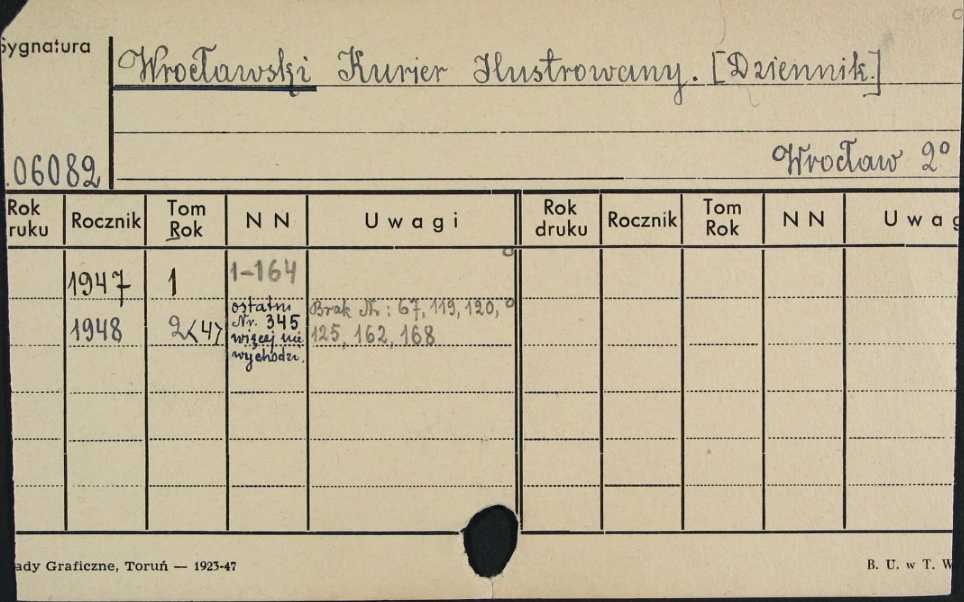 Sygnatura
Wrocławski Kurier Ilustrowany. [Dziennik.]
Wrocław 2°
06082
Rok ruku Rocznik Tom Rok N N Uwagi Rok druku Rocznik Tom Rok N N Uwag
1947 1 1-164
1948 2<4> ostatni Nr. 345 więcej nie wychodzi. Brak Nr.: 67, 119, 120,
125, 162, 168
ady Graficzne, Toruń — 1923-47
B. U. w T. W